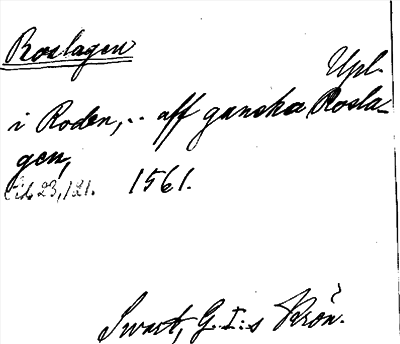 Roslagen
Upl.
i Roden, .. aff ganska Rosla-
gen,
23, 121. 1561.
Swart, G. I:s Krön.